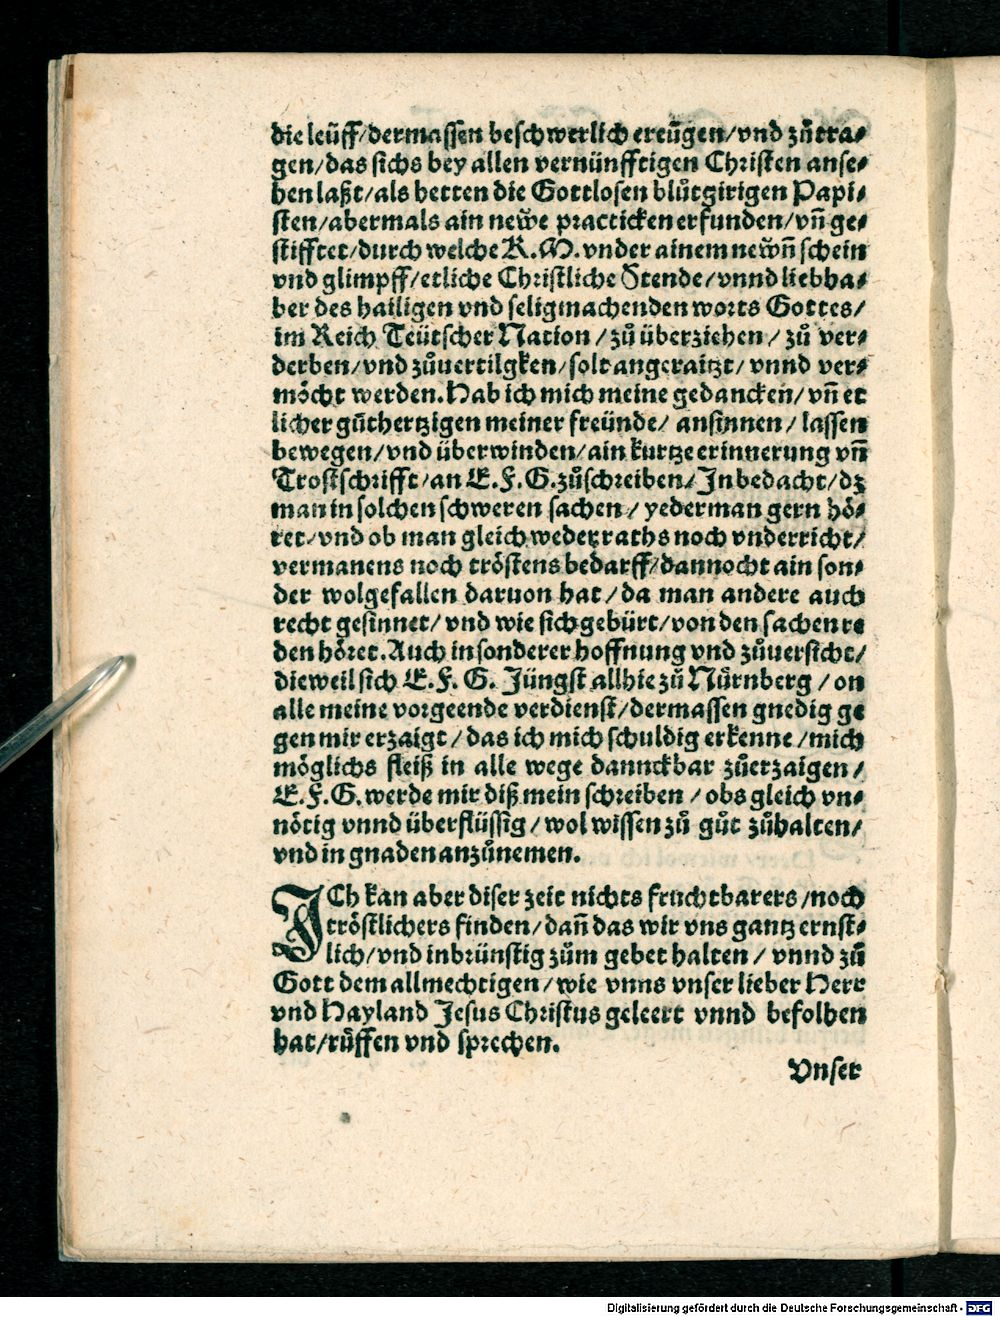 die leüff/dermassen beschwerlich ereügen/vnd zůtra⸗
gen/das sichs bey allen vernünfftigen Christen anse⸗
hen laßt/als hetten die Gottlosen blůtgirigen Papi⸗
sten/abermals ain newe practicken erfunden/vñ ge⸗
stifftet/durch welche K. M. vnder ainem newñ schein
vnd glimpff/etliche Christliche Stende/vnnd liebha⸗
ber des hailigen vnd seligmachenden worts Gottes/
im Reich Teütscher Nation/zů überziehen/zů ver⸗
derben/vnd zůuertilgken/solt angeraitzt/vnnd ver⸗
möcht werden. Hab ich mich meine gedancken/vñ et
licher gůthertzigen meiner freünde/ansinnen/lassen
bewegen/vnd überwinden/ain kurtze erinnerung vñ
Trostschrifft/an E. F. G. zůschreiben/Jn bedacht/dz
man in solchen schweren sachen/yederman gern hö⸗
ret/vnd ob man gleich weder raths noch vnderricht/
vermanens noch tröstens bedarff/dannocht ain son⸗
der wolgefallen daruon hat/da man andere auch
recht gesinnet/vnd wie sich gebürt/von den sachen re
den höret. Auch in sonderer hoffnung vnd zůuersicht/
dieweil sich E. F. G. Jüngst allhie zů Nürnberg/on
alle meine vorgeende verdienst/dermassen gnedig ge
gen mir erzaigt/das ich mich schuldig erkenne/mich
möglichs fleiß in alle wege dannckbar zůerzaigen/
E. F. G. werde mir diß mein schreiben/obs gleich vn⸗
nötig vnnd überflüssig/wol wissen zů gůt zůhalten/
vnd in gnaden anzůnemen.
JCh kan aber diser zeit nichts fruchtbarers/noch
tröstlichers finden/dañ das wir vns gantz ernst⸗
lich/vnd inbrünstig zům gebet halten/vnnd zů
Gott dem allmechtigen/wie vnns vnser lieber Herr
vnd Hayland Jesus Christus geleert vnnd befolhen
hat/růffen vnd sprechen.
Vnser
Digitalisierung gefördert durch die Deutsche Forschungsgemeinschaft - DFG